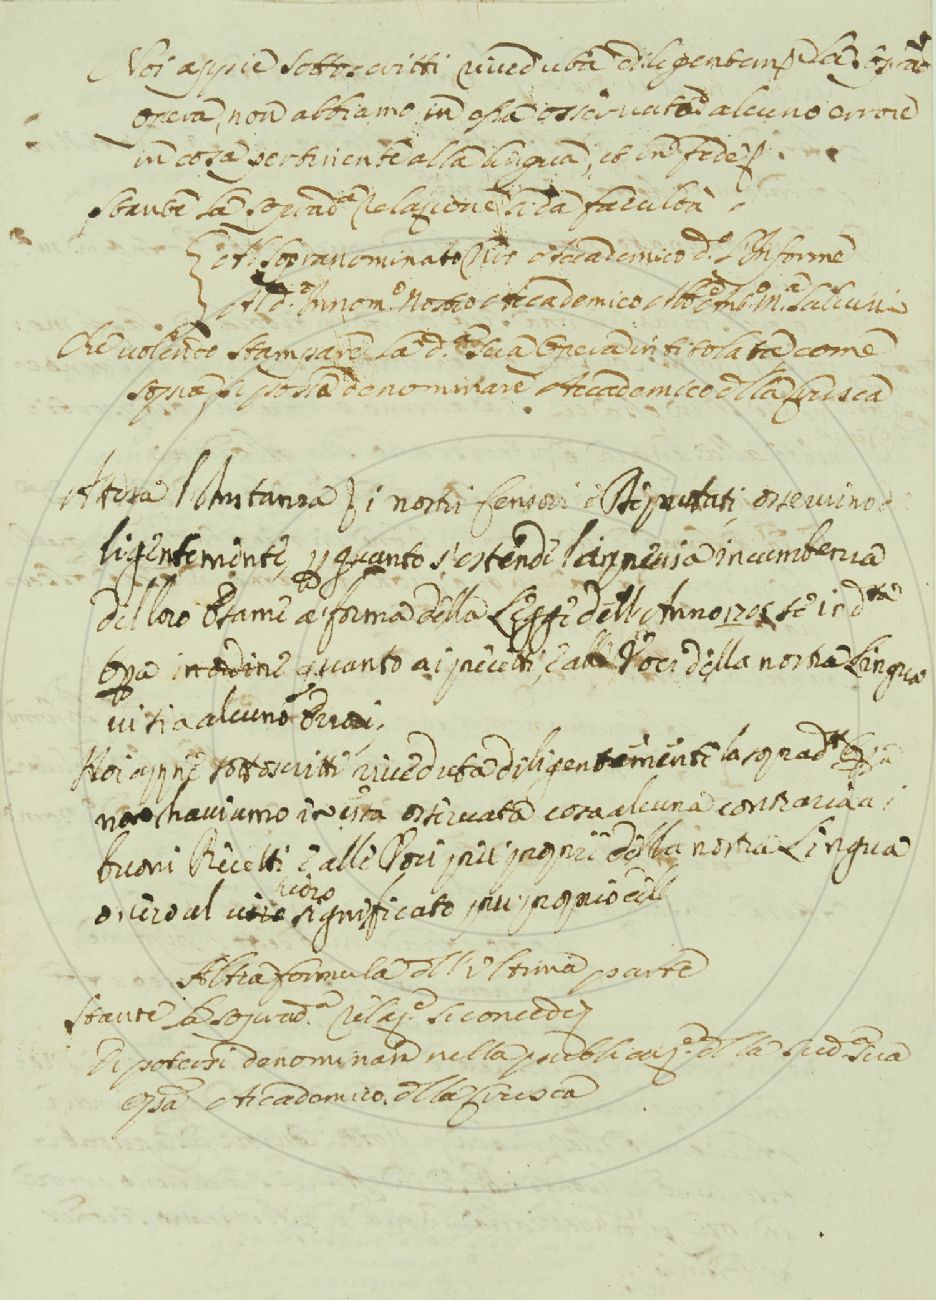 Noi appiè sottoscritti riveduta diligentem. la soprad.
opera, non abbiamo in essa osservato alcuno errore
in cosa pertinente alla lingua, et in fede
stante la soprad.ª relazione si da facultà
Al sopranominato Nro Accademico d.º l'Informe
Al d.º Innom.º Nostro Accademico Ab.e Ant.º M.ª Salvini
Che volendo stampare la d.ª sua Opera intitolata come
sopra si possa denominare Accademico della Crusca
Attesa l'Instanza i nostri Censori e Deputati osservino di
ligentemente, p quanto s'estende l'ampiezza incumbenza
del loro Esame a forma della Legge dell'Anno 1705 se in d.ta
Opa in ordine quanto ai precetti, e alle Voci della nostra Lingua
vi sia alcuno Errori,
Noi appiè sottoscritti riveduta diligentemente la soprad.ta Opa
non haviamo in essa osservata cosa alcuna contraria a i
buoni Precetti e alle Voci più proprie della nostra Lingua
overo al vero significato più proprio dell
Altra formula dell'Ultima parte
Stante la soprad.ª Relaz.e si concede
Di potersi denominare nella pubblicaz.e della sud.ª sua
opa Accademico della Crusca